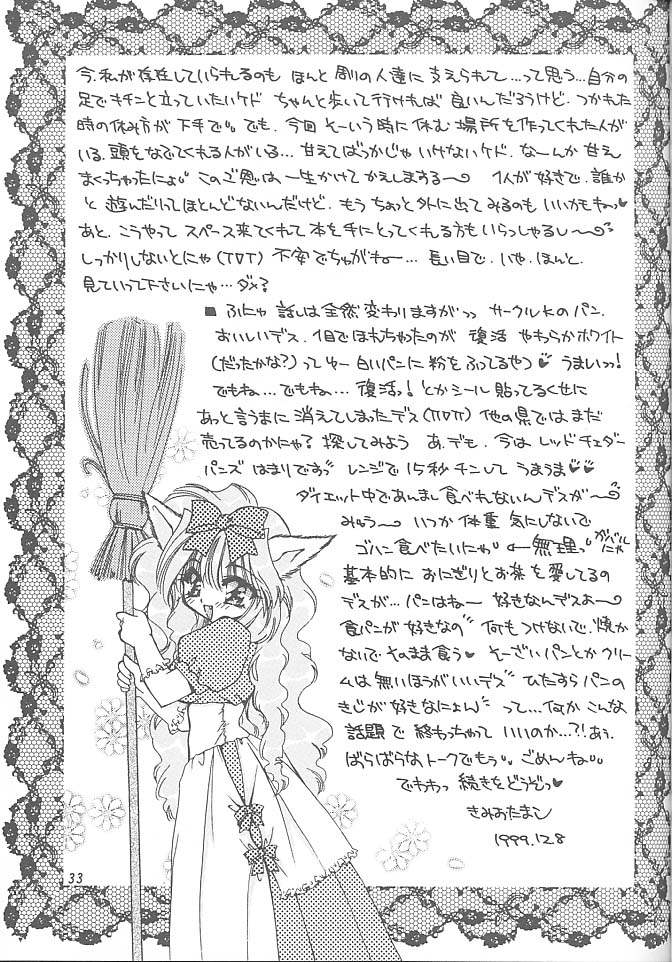 今、私が存在していられるのも ほんと 周りの人達に 支えられて…って思う…自分の
足でキチンと立っていたいケド ちゃんと歩いて行ければ 良いんだろうけど、つかれた
時の休み方が 下手で。でも、今回 そーいう時に休む 場所を作ってくれた人が
いる、頭をなでてくれる人がいる…甘えてばっかじゃ いけないケド、なーんか 甘え
まくっちゃったにょ。このご恩は一生かけて かえしまする〜 1人が好きで、誰か
と 遊んだりってほとんどないんだけど、もう ちょっと外に出てみるのも いいかもねっ♥
あと、こうやって スペース来てくれて 本を手にとってくれる方も いらっしゃるし〜
しっかりしないとにゃ(TDT) 不安でちゅがね〜… 長い目で、いや、ほんと、
見ていって下さいにゃ…ダメ?
■ ふにゃ 話しは全然変わりますがっっ サークルKのパン、
おいしいデス、1口でほれちゃったのが 復活 やわらかホワイト
(だったかな?)ってゆー 白いパンに 粉をふってるやつ♥ うまいっっ!
でもね…でもね… 復活っ!とかシール 貼ってるくせに
あっと言うまに 消えてしまったデス(TDT) 他の県では まだ
売ってるのかにゃ? 探してみよう あ、でも、今は レッドチェダー
バーズ はまりですっ レンジで 15秒チンして うまうま♥♥
ダイエット中であんまし食べれないんデスが〜
みゅう〜 いつか 体重 気にしないで
ゴハン食べたいにゃ ←無理っ ガバルにゃ
基本的に おにぎりとお茶を愛してるの
デスが… パンはね〜 好きなんデスよ〜
食パンが好きなの 何もつけないで、焼か
ないで そのまま食う♥ そーざいパンとか クリー
ムは無いほうがいいデス ひたすら パンの
きじが好きなにょん って…何か こんな
話題 で 終わっちゃって いいのか…?! あぅ、
ばらばらな、トークでもう。ごめんね。
でわわっ 続きをどうぞっ♥
きみおたまこ
1999.12.8
33